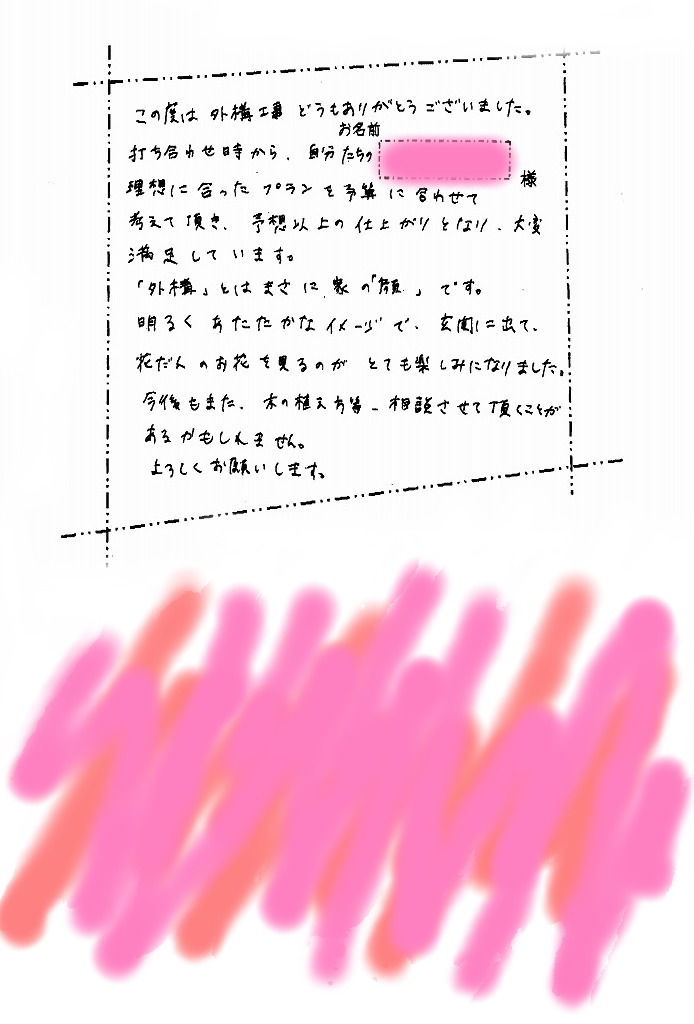 この度は 外構工事 どうもありがとうございました。
お名前
打ち合わせ時から、自分たちの
様
理想に合ったプランを予算に合わせて
考えて頂き、予想以上の仕上がりとなり、大変
満足しています。
「外構」とはまさに家の「顔」です。
明るくあたたかなイメージで、玄関に出て、
花だんのお花を見るのがとても楽しみになりました。
今後もまた、木の植え方等、相談させて頂くことが
あるかもしれません。
よろしくお願いします。